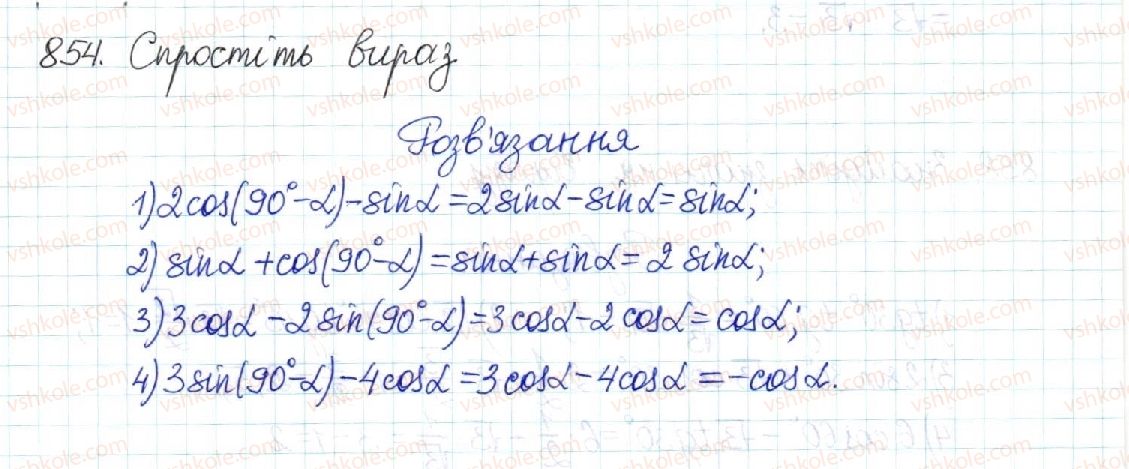 854. Спростіть вираз
Розв'язання
1) 2cos(90°-α)-sinα=2sinα-sinα=sinα;
2) sinα+cos(90°-α)=sinα+sinα=2 sinα;
3) 3cosα-2sin(90°-α)=3cosα-2cosα=cosα;
4) 3sin(90°-α)-4cosα=3cosα-4cosα=-cosα.